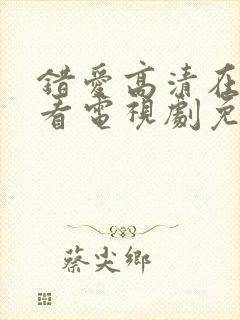 錯愛高清在
看電視劇免
蔡尖鄉